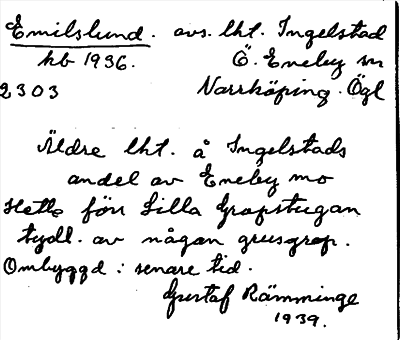 Emilslund. avs. lht. Ingelstad
hb 1936. Ö. Eneby sn
2303 Norrköping. Ögl
Äldre lht. å Ingelstads
andel av Eneby mo
Hette förr Lilla Gropstugan
tydl. av någon grusgrop.
Ombyggd i senare tid.
Gustaf Rämminge
1939.